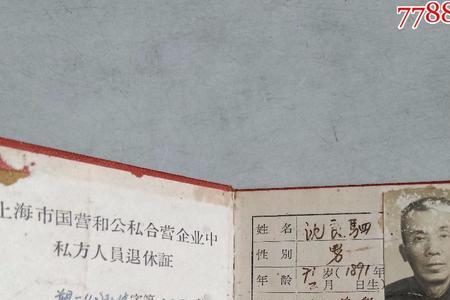 7788
上海市国营和公私合营企业中
私方人員退休証
姓名 沈良駟
性別 男
年龄 71岁(1891年
月 日生)